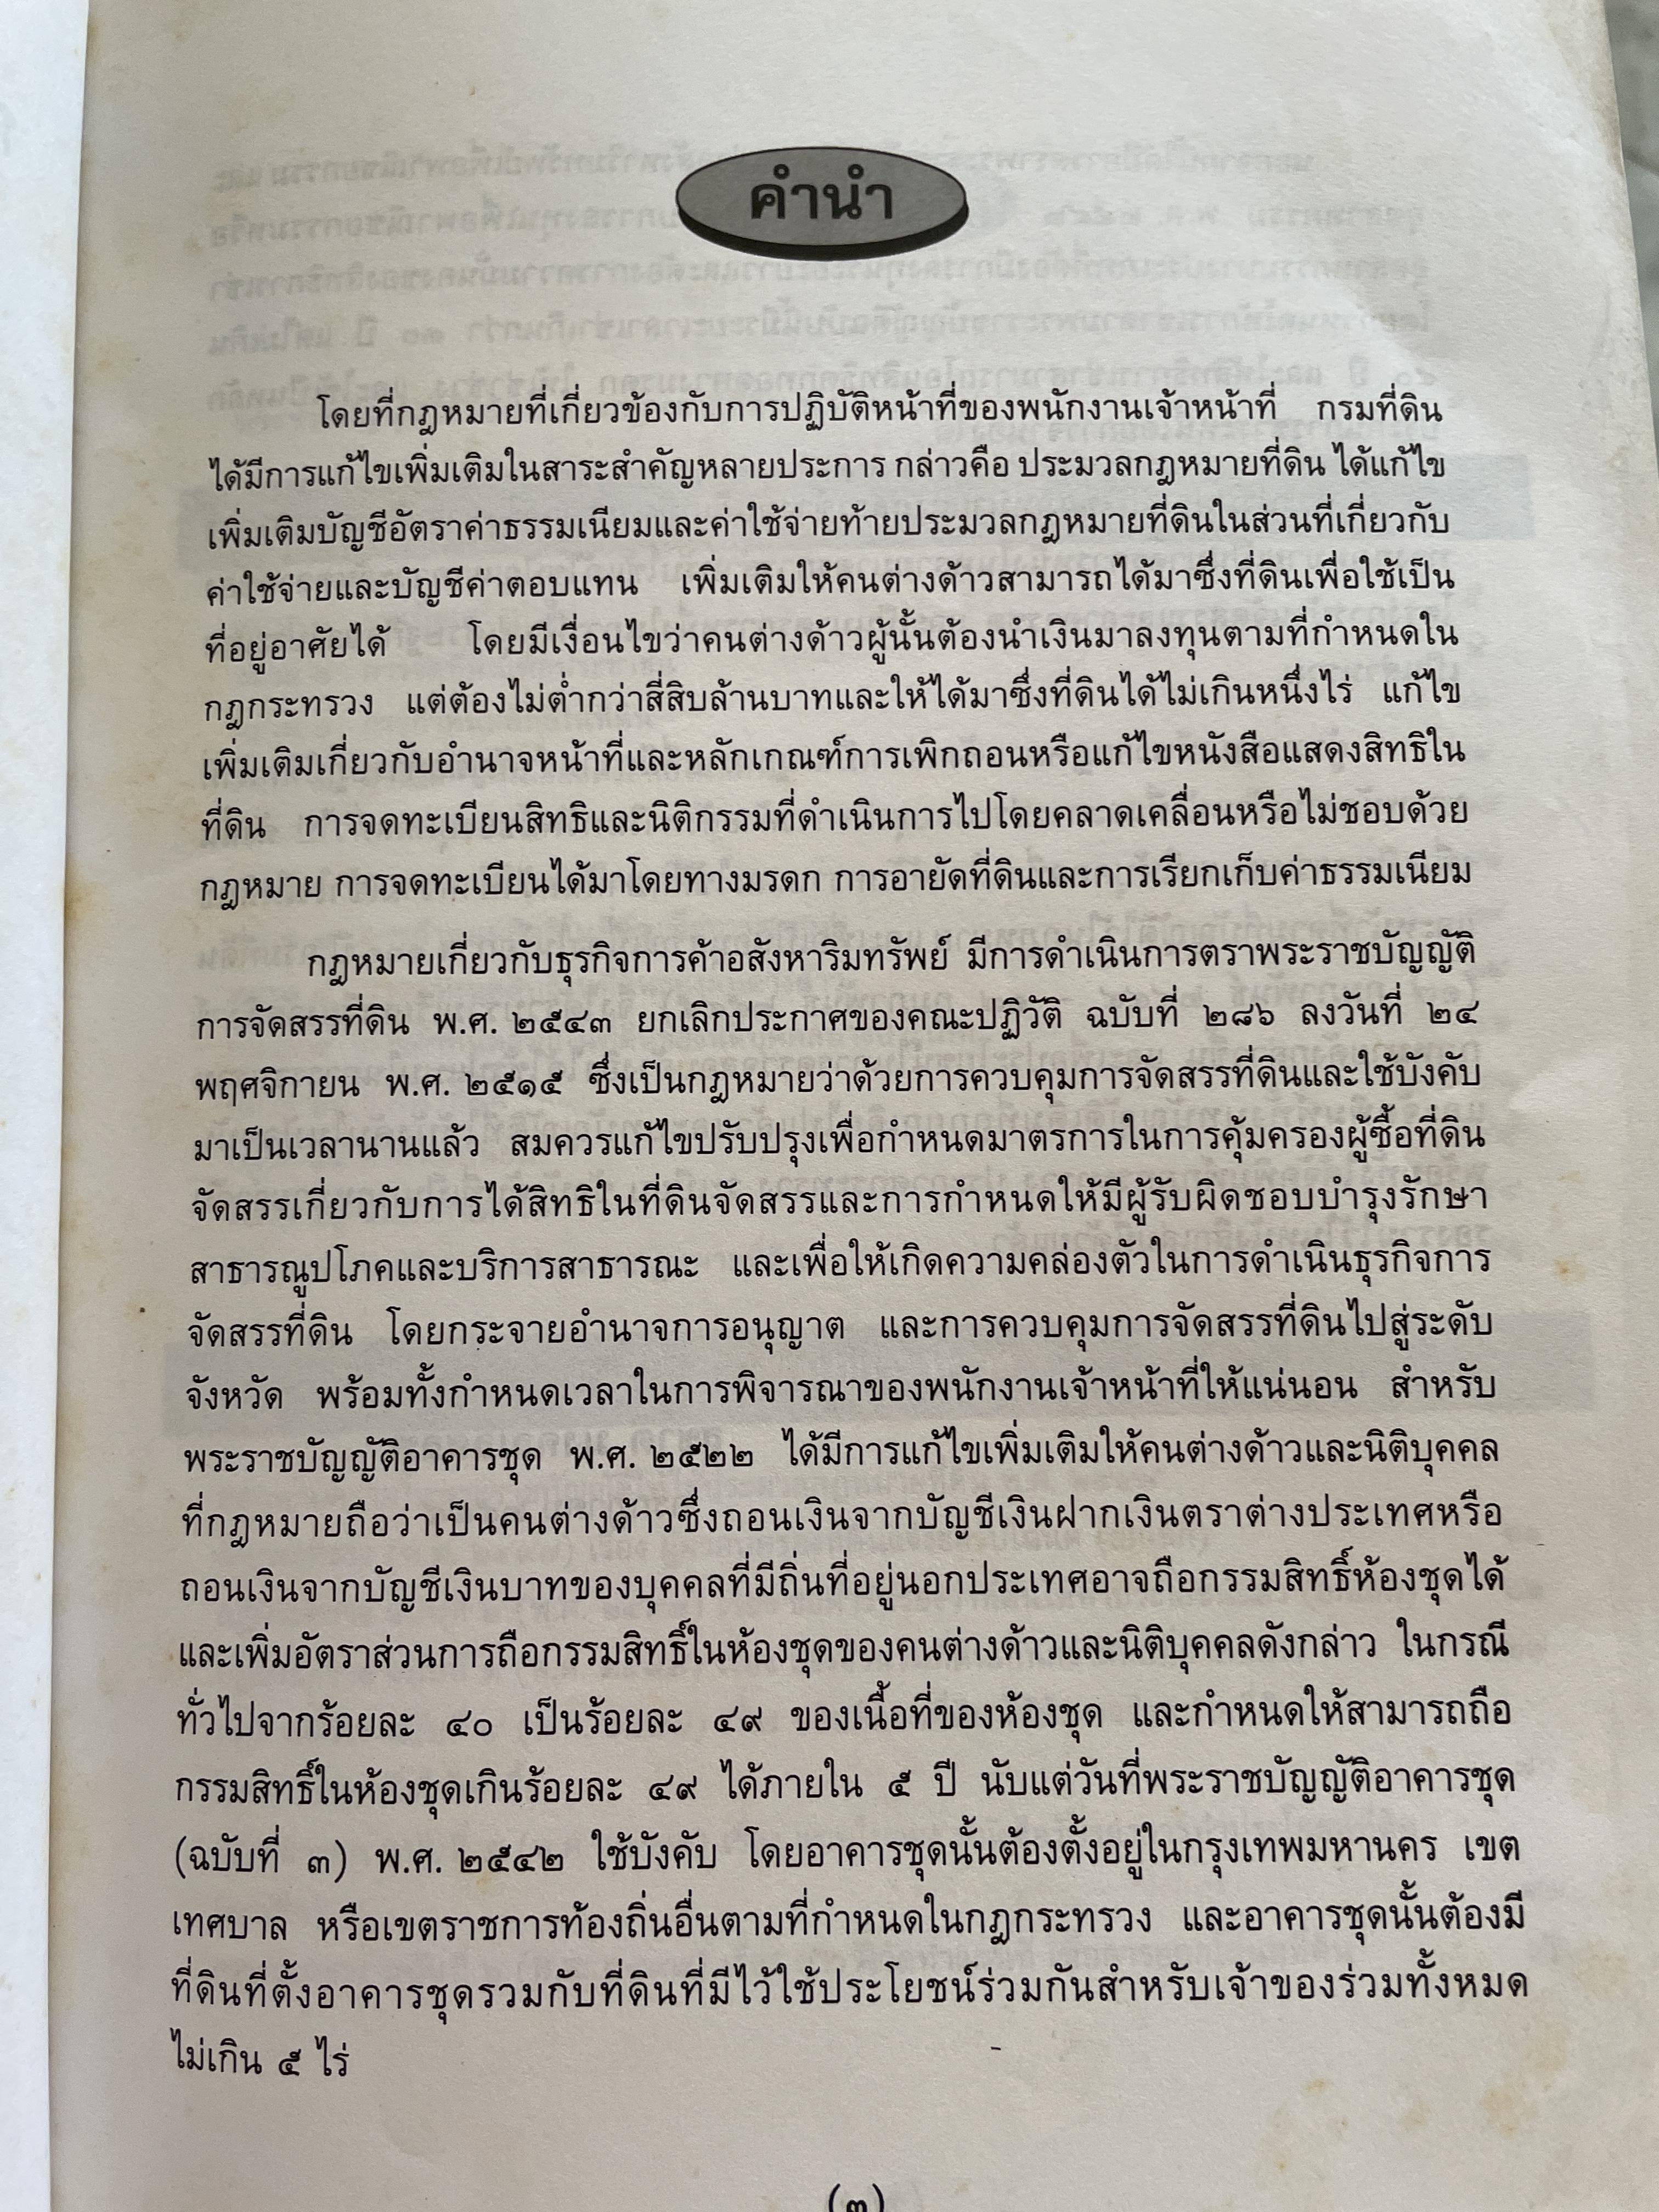 คำนำ
โดยที่กฎหมายที่เกี่ยวข้องกับการปฏิบัติหน้าที่ของพนักงานเจ้าหน้าที่ กรมที่ดิน
ได้มีการแก้ไขเพิ่มเติมในสาระสำคัญหลายประการ กล่าวคือ ประมวลกฎหมายที่ดิน ได้แก้ไข
เพิ่มเติมบัญชีอัตราค่าธรรมเนียมและค่าใช้จ่ายท้ายประมวลกฎหมายที่ดินในส่วนที่เกี่ยวกับ
ค่าใช้จ่ายและบัญชีค่าตอบแทน เพิ่มเติมให้คนต่างด้าวสามารถได้มาซึ่งที่ดินเพื่อใช้เป็น
ที่อยู่อาศัยได้ โดยมีเงื่อนไขว่าคนต่างด้าวผู้นั้นต้องนำเงินมาลงทุนตามที่กำหนดใน
กฎกระทรวง แต่ต้องไม่ต่ำกว่าสี่สิบล้านบาทและให้ได้มาซึ่งที่ดินได้ไม่เกินหนึ่งไร่ แก้ไข
เพิ่มเติมเกี่ยวกับอำนาจหน้าที่และหลักเกณฑ์การเพิกถอนหรือแก้ไขหนังสือแสดงสิทธิใน
ที่ดิน การจดทะเบียนสิทธิและนิติกรรมที่ดำเนินการไปโดยคลาดเคลื่อนหรือไม่ชอบด้วย
กฎหมาย การจดทะเบียนได้มาโดยทางมรดก การอายัดที่ดินและการเรียกเก็บค่าธรรมเนียม
กฎหมายเกี่ยวกับธุรกิจการค้าอสังหาริมทรัพย์ มีการดำเนินการตราพระราชบัญญัติ
การจัดสรรที่ดิน พ.ศ. ๒๕๔๓ ยกเลิกประกาศของคณะปฏิวัติ ฉบับที่ ๒๘๖ ลงวันที่ ๒๔
พฤศจิกายน พ.ศ. ๒๕๑๕ ซึ่งเป็นกฎหมายว่าด้วยการควบคุมการจัดสรรที่ดินและใช้บังคับ
มาเป็นเวลานานแล้ว สมควรแก้ไขปรับปรุงเพื่อกำหนดมาตรการในการคุ้มครองผู้ซื้อที่ดิน
จัดสรรเกี่ยวกับการได้สิทธิในที่ดินจัดสรรและการกำหนดให้มีผู้รับผิดชอบบำรุงรักษา
สาธารณูปโภคและบริการสาธารณะ และเพื่อให้เกิดความคล่องตัวในการดำเนินธุรกิจการ
จัดสรรที่ดิน โดยกระจายอำนาจการอนุญาต และการควบคุมการจัดสรรที่ดินไปสู่ระดับ
จังหวัด พร้อมทั้งกำหนดเวลาในการพิจารณาของพนักงานเจ้าหน้าที่ให้แน่นอน สำหรับ
พระราชบัญญัติอาคารชุด พ.ศ. ๒๕๒๒ ได้มีการแก้ไขเพิ่มเติมให้คนต่างด้าวและนิติบุคคล
ที่กฎหมายถือว่าเป็นคนต่างด้าวซึ่งถอนเงินจากบัญชีเงินฝากเงินตราต่างประเทศหรือ
ถอนเงินจากบัญชีเงินบาทของบุคคลที่มีถิ่นที่อยู่นอกประเทศอาจถือกรรมสิทธิ์ห้องชุดได้
และเพิ่มอัตราส่วนการถือกรรมสิทธิ์ในห้องชุดของคนต่างด้าวและนิติบุคคลดังกล่าว ในกรณี
ทั่วไปจากร้อยละ ๔๐ เป็นร้อยละ ๔๙ ของเนื้อที่ของห้องชุด และกำหนดให้สามารถถือ
กรรมสิทธิ์ในห้องชุดเกินร้อยละ ๔๙ ได้ภายใน ๕ ปี นับแต่วันที่พระราชบัญญัติอาคารชุด
(ฉบับที่ ๓) พ.ศ. ๒๕๔๒ ใช้บังคับ โดยอาคารชุดนั้นต้องตั้งอยู่ในกรุงเทพมหานคร เขต
เทศบาล หรือเขตราชการท้องถิ่นอื่นตามที่กำหนดในกฎกระทรวง และอาคารชุดนั้นต้องมี
ที่ดินที่ตั้งอาคารชุดรวมกับที่ดินที่มีไว้ใช้ประโยชน์ร่วมกันสำหรับเจ้าของร่วมทั้งหมด
ไม่เกิน ๕ ไร่
(๓)